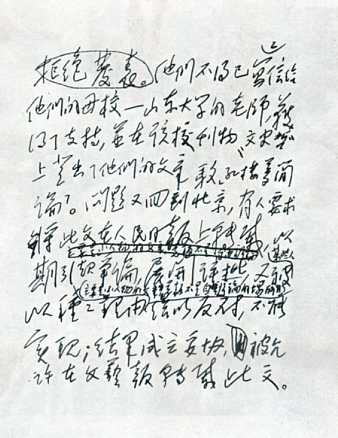 拒絕發表。他们不得已写信给
他们的母校—山东大学的老师,获
得了支持,並在该校刊物“文史哲”
上登出了他们的文章驳“红楼梦简
论”。问题又回到北京,有人要求
将此文在人民日报上转载,以
期引起争论,展开批评,又被某些人
(主要是小人物的文章,党报不是自由辩论的场所)
以種々理由给以反对,不能
实现;结果成立妥协,被允
许在文藝报转载此文。